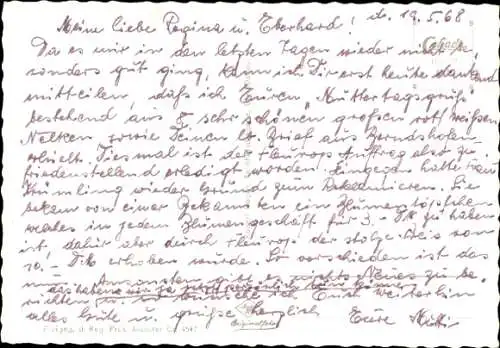 Meine liebe Regina u. Eberhard! d. 19.5.68
Da es mir in den letzten Tagen wieder nicht be-
sonders gut ging, kann ich Dir erst heute dankend
mitteilen, daß ich Euren "Muttertagsgruß"
bestehend aus 8 sehr schönen großen rot/weißen
Nelken, sowie Deinen lb. Brief aus
erhielt. Diesmal ist der Fleurop Auftrag also zu-
friedenstellend erledigt worden. Hingegen hatte Frau
Kümling wieder Grund zum Reklamieren. Sie
bekam von einer Bekannten ein Blumentöpfchen
welches in jedem Blumengeschäft für 3.- DM zu haben
ist, dafür aber durch Fleurop der stolze Preis von
10,- DM erhoben wurde. So verschieden ist das
Ansonsten gibt es nichts Neues zu be-
richten u. wünsche ich Euch weiterhin
alles Gute u. grüße herzlich Eure Mutti
Originalfoto